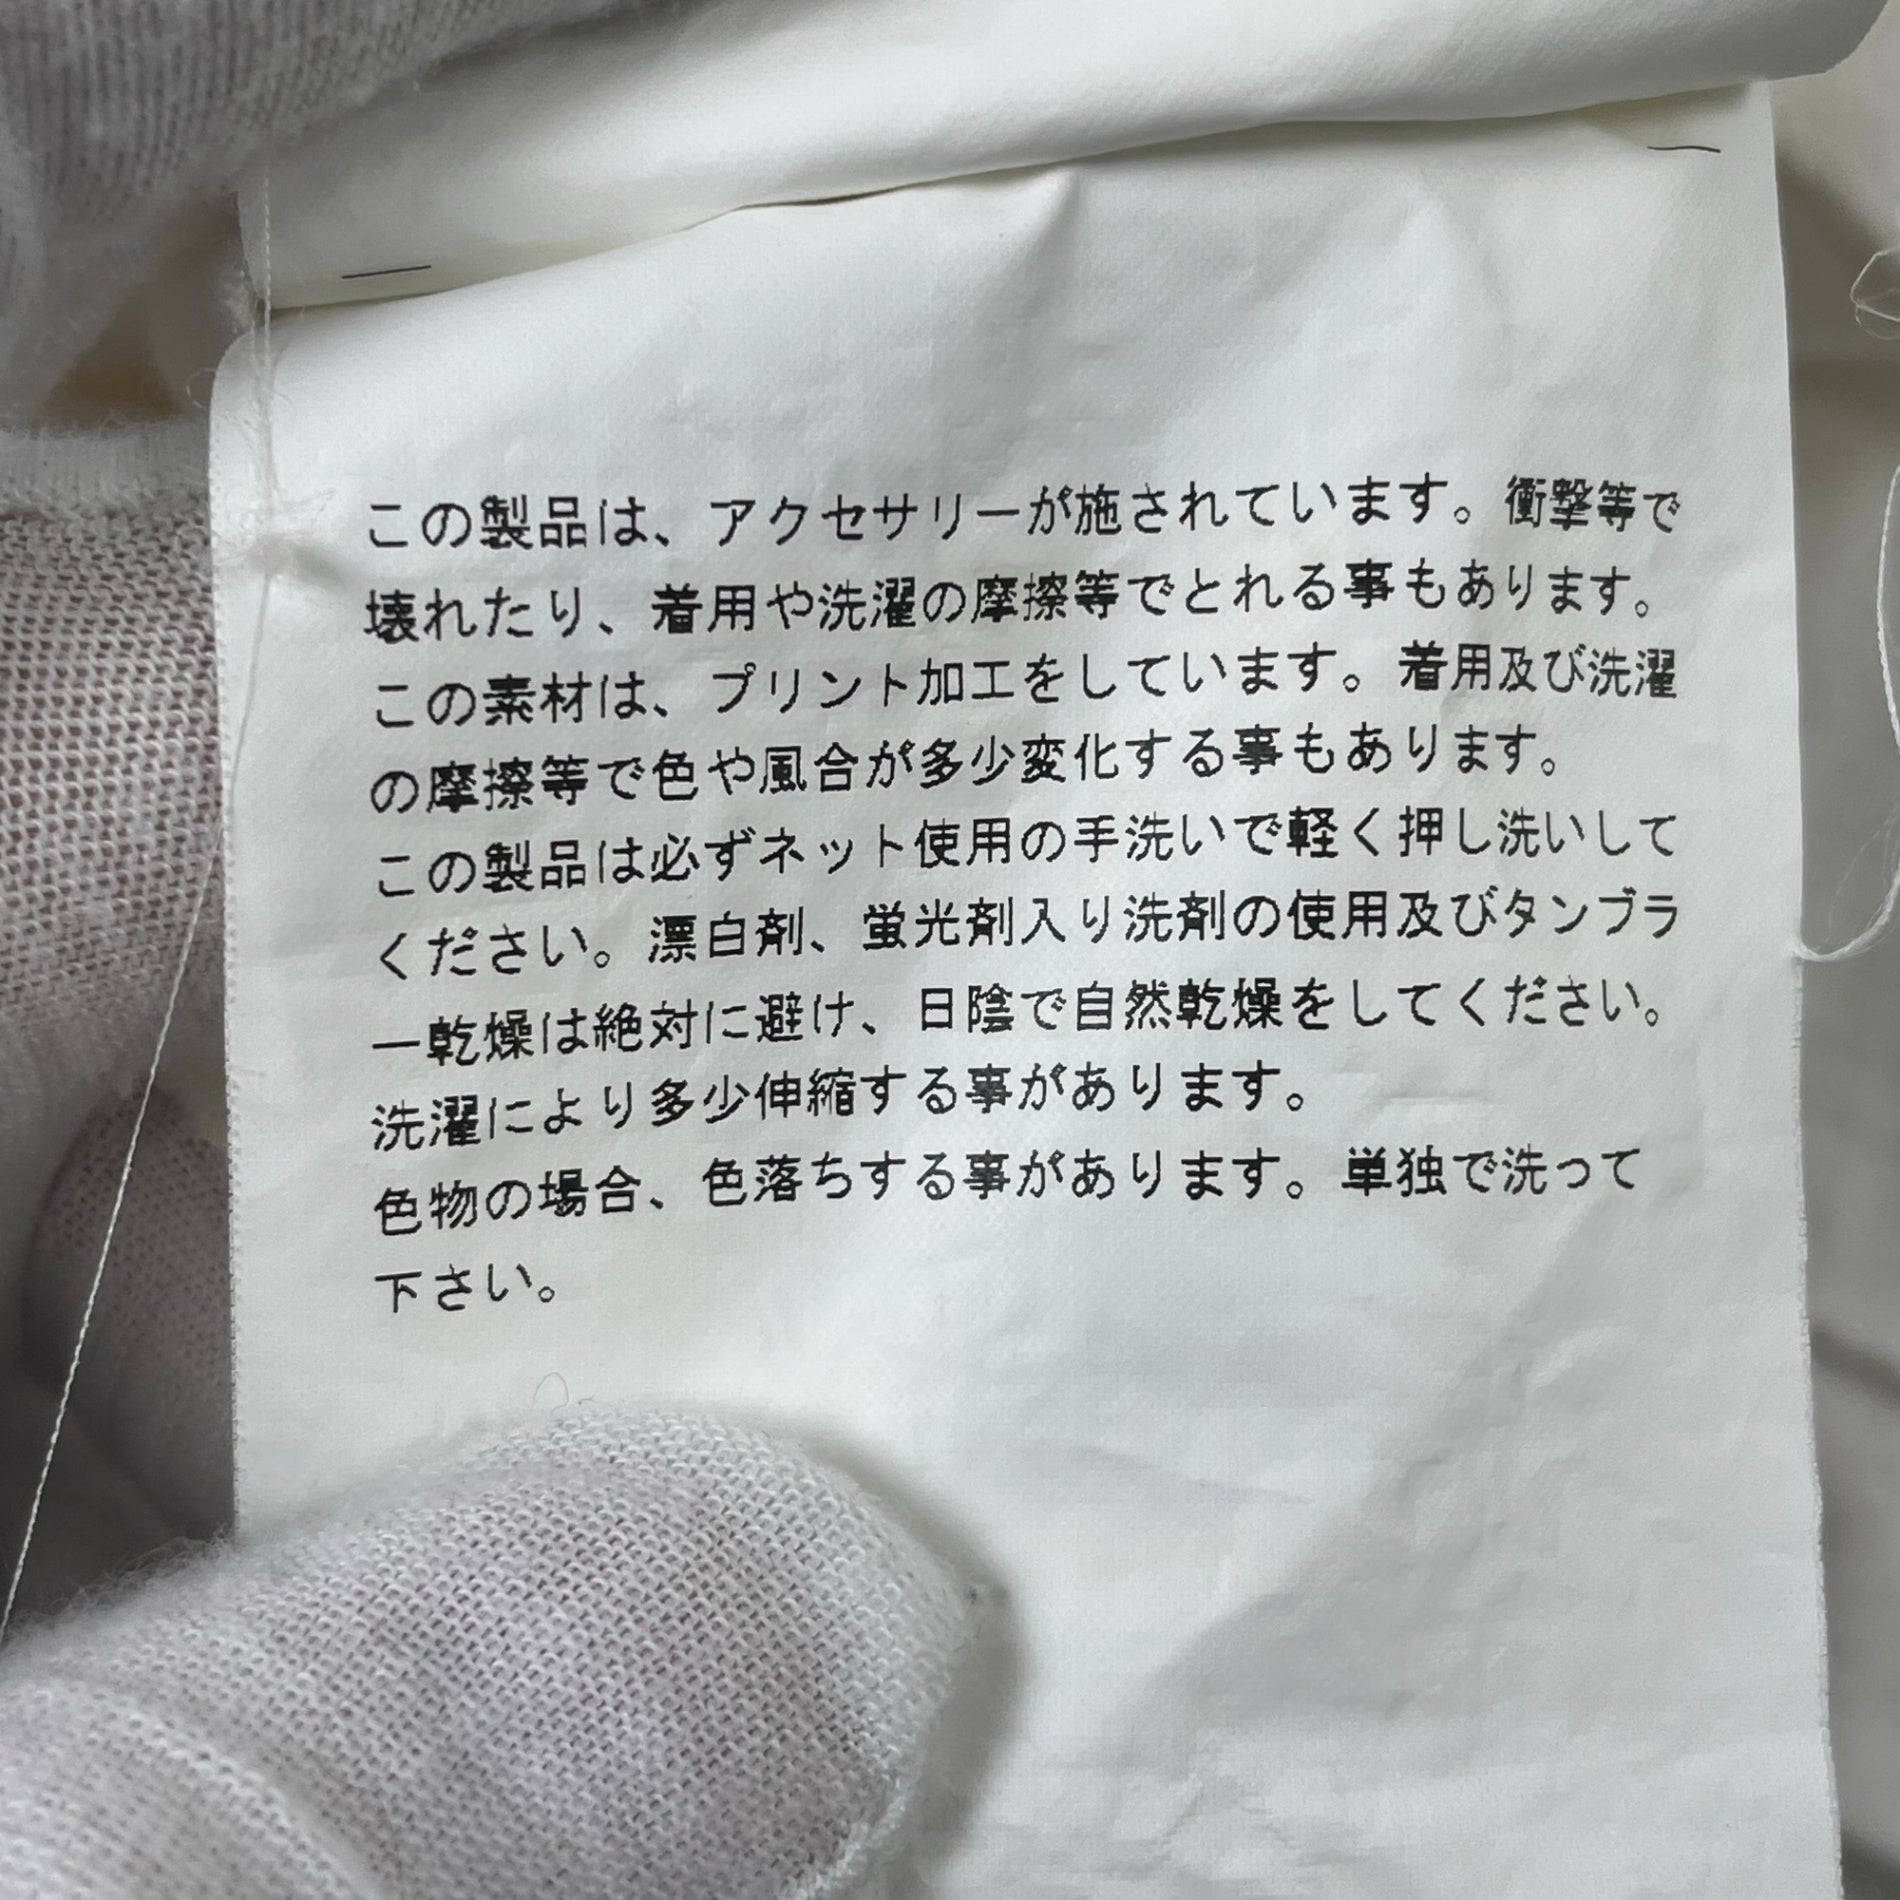 この製品は、アクセサリーが施されています。衝撃等で
壊れたり、着用や洗濯の摩擦等でとれる事もあります。
この素材は、プリント加工をしています。着用及び洗濯
の摩擦等で色や風合が多少変化する事もあります。
この製品は必ずネット使用の手洗いで軽く押し洗いして
ください。漂白剤、蛍光剤入り洗剤の使用及びタンブラ
ー乾燥は絶対に避け、日陰で自然乾燥をしてください。
洗濯により多少伸縮する事があります。
色物の場合、色落ちする事があります。単独で洗って
下さい。